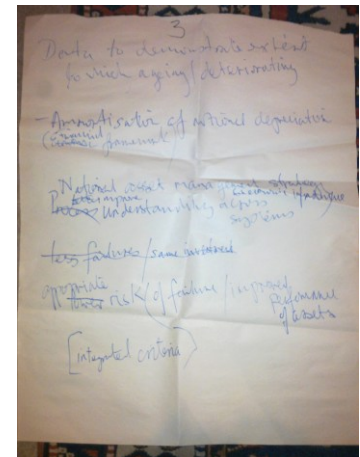 3
Data to demonstrate extent
to which ageing/deteriorating
- Ammortisation of notional depreciation
framework
National asset management strategy
understanding across
systems
less failures/same investment
appropriate
lower risk of failure/improved
performance
of assets
[integrated criteria]